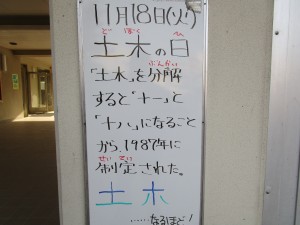 11月18日(火)
ど ぼく ひ
土木の日
ぶんかい
「土木」を分解
すると「十一」と
「十八」になること
から、1987年に
せい てい
制定された。
土 木
……なるほど!